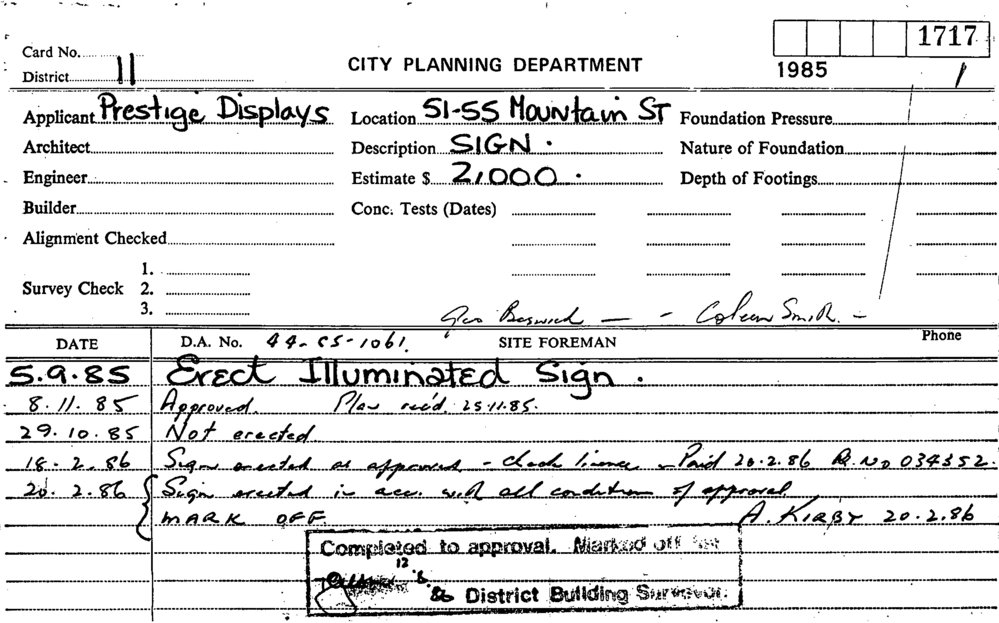 Card No.
1717
District 11
CITY PLANNING DEPARTMENT
1985
1
Applicant Prestige Displays
Location 51-55 Mountain St
Foundation Pressure
Architect
Description SIGN .
Nature of Foundation
Engineer
Estimate $ 2,000 .
Depth of Footings
Builder
Conc. Tests (Dates)
Alignment Checked
1.
Survey Check 2.
3.
Geo Beswick — - Coleen Smith. -
DATE D.A. No. 44-85-1061. SITE FOREMAN Phone
5.9.85 Erect Illuminated Sign .
8.11.85 Approved. Plan rec'd. 25.11.85.
29.10.85 Not erected
18.2.86 Sign erected as approved - check licence - Paid 20.2.86 R. No 034352.
20.2.86 Sign erected in acc. with all condition of approval
MARK OFF. A. KIRBY 20.2.86
Completed to approval. Marked off
12
.86 District Building Surveyor.